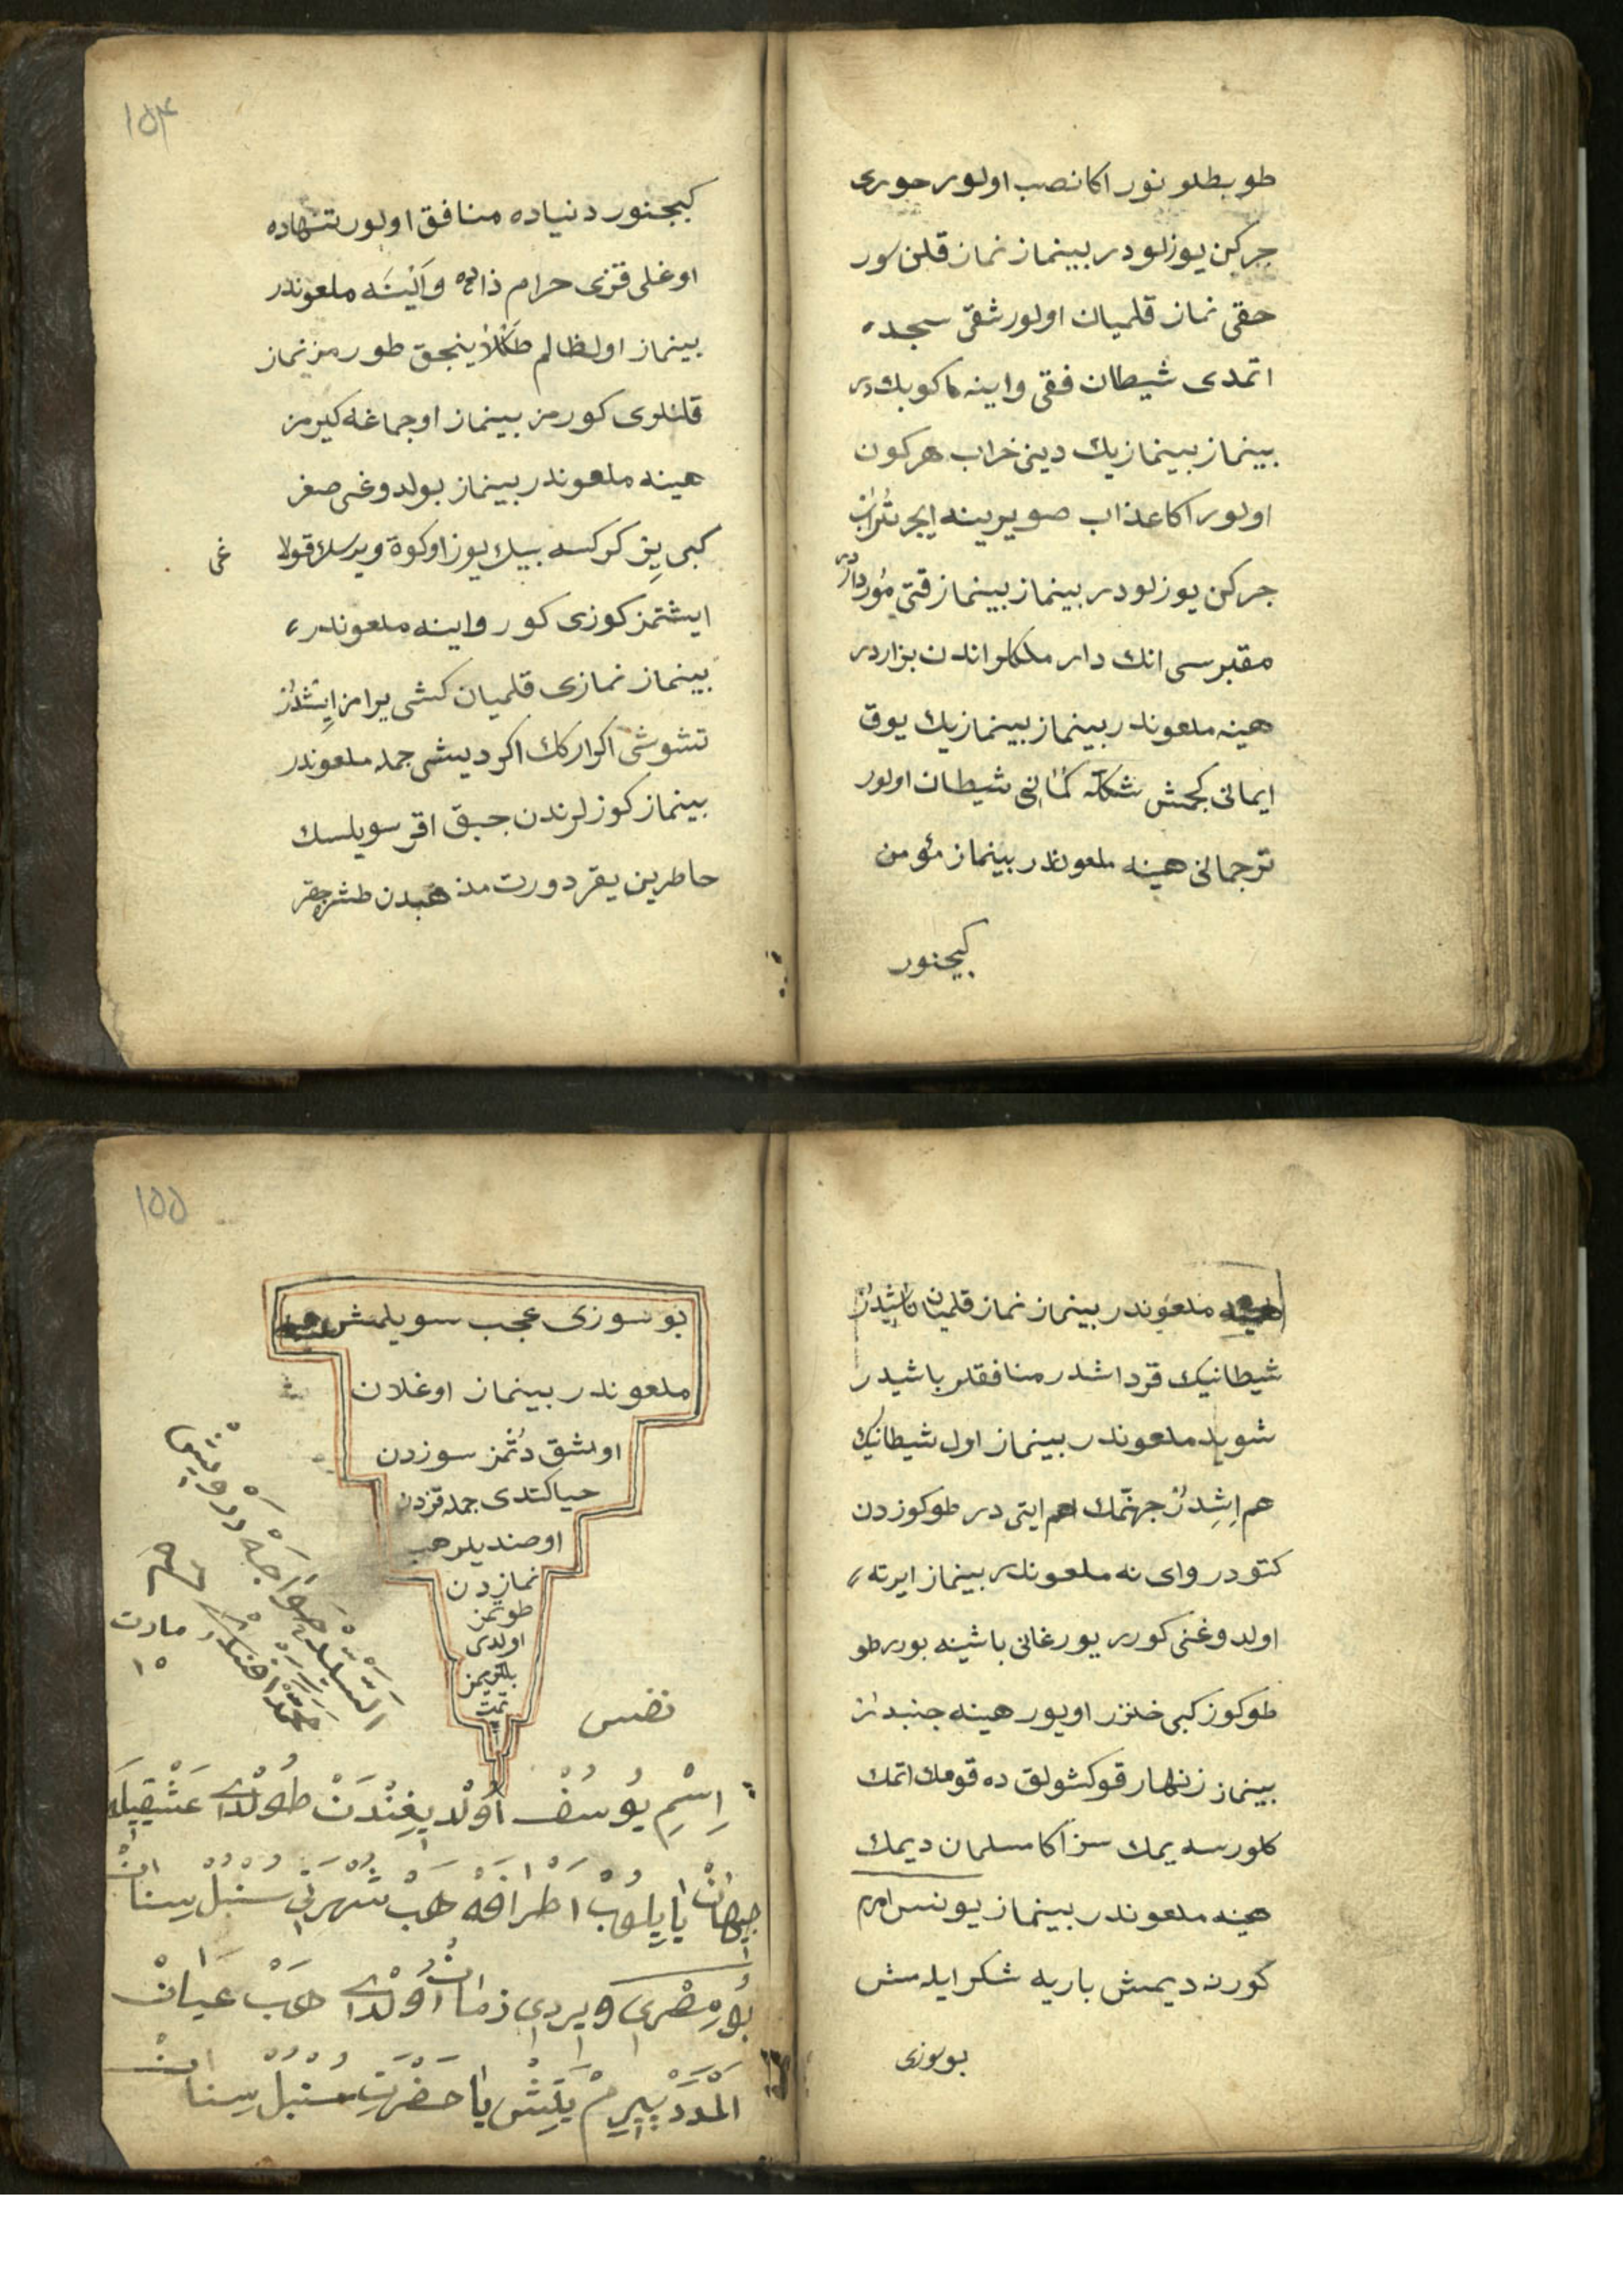 طوبطلو نور اكا نصب اولور حورى
جركن يوزلودر بينماز نماز قلن سور
حقى نماز قلميان اولور شقى سجده
اتمدى شيطان فقى واينه كوبكدر
بينماز بينمازيك دينى خراب هركون
اولور اكا عذاب صويرينه ايچر تراب
جركن يوزلودر بينماز بينماز قتى مرداردر
مقبرسى انك دار ملكلر اندن بزاردر
هينه ملعوندر بينماز بينمازيك يوق
ايمانى كجمش شيطان اولور
ترجمانى هينه ملعوندر بينماز مؤمن
كيجنور
١٥٤
كيجنور دنياده منافق اولور تنهاده
اوغلى قزى حرام زاده واينه ملعوندر
بينماز اول ظالم طورمز نماز
قلنلرى كورمز بينماز اوجماغه كيرمز
هينه ملعوندر بينماز بولدوغى صغز
كبى يز كركسه بيك يوز اوكوة ويرسك قولا غى
ايشتمز كوزى كور واينه ملعوندر
بينماز نمازى قلميان كشى يرامز ايشدر
تشوشى اكر اركك اكر ديشى جمله ملعوندر
بينماز كوزلرندن جبق اقر سويلسك
خاطرين يقر دورت مذهبدن طشره جقر
هينه ملعوندر بينماز نماز قلميان
شيطانيك قرداشدر منافقلر باشيدر
شويله ملعوندر بينماز اول شيطانيك
هم اشدر جهنمك هم ايتى در طوكوزدن
كتودر واى نه ملعوندر بينماز ايرته
اولدوغنى كورر يورغانى باشينه بورر طو
طوكوز كبى خنزر اويور هينه جنبدر
بينماز زنهار قوكشولق ده قومك اتمك
كلورسه يمك سز اكا مسلمان ديمك
هينه ملعوندر بينماز يونس امرم
كورن ديمش باريه شكر ايلمش
بوسوزى
١٥٥
بو سوزى عجب سويلمش هينه
ملعوندر بينماز اوغلان
اوشق دتمز سوزدن
حيا كتدى جمله قزدن
اوصنديلر هب
نمازدن
طوتمز
اولدى
تمت
مارت
١٥
نفس
اِسْمِ يُوسُفْ اُولْديغِنْدَنْ طُولْدى عَشْقِيلَه
جِهانْ يايِلوبْ اطْرافَه هَبْ شُهْرَتى سُنْبُلْ سِنانْ
بُو مِصْرى ويردى زمانْ اُولْدى هَبْ عَيانْ
اَلْمَدَدْ پيرِمْ يَتِشْ يا حَضْرَتِ سُنْبُلْ سِنانْ